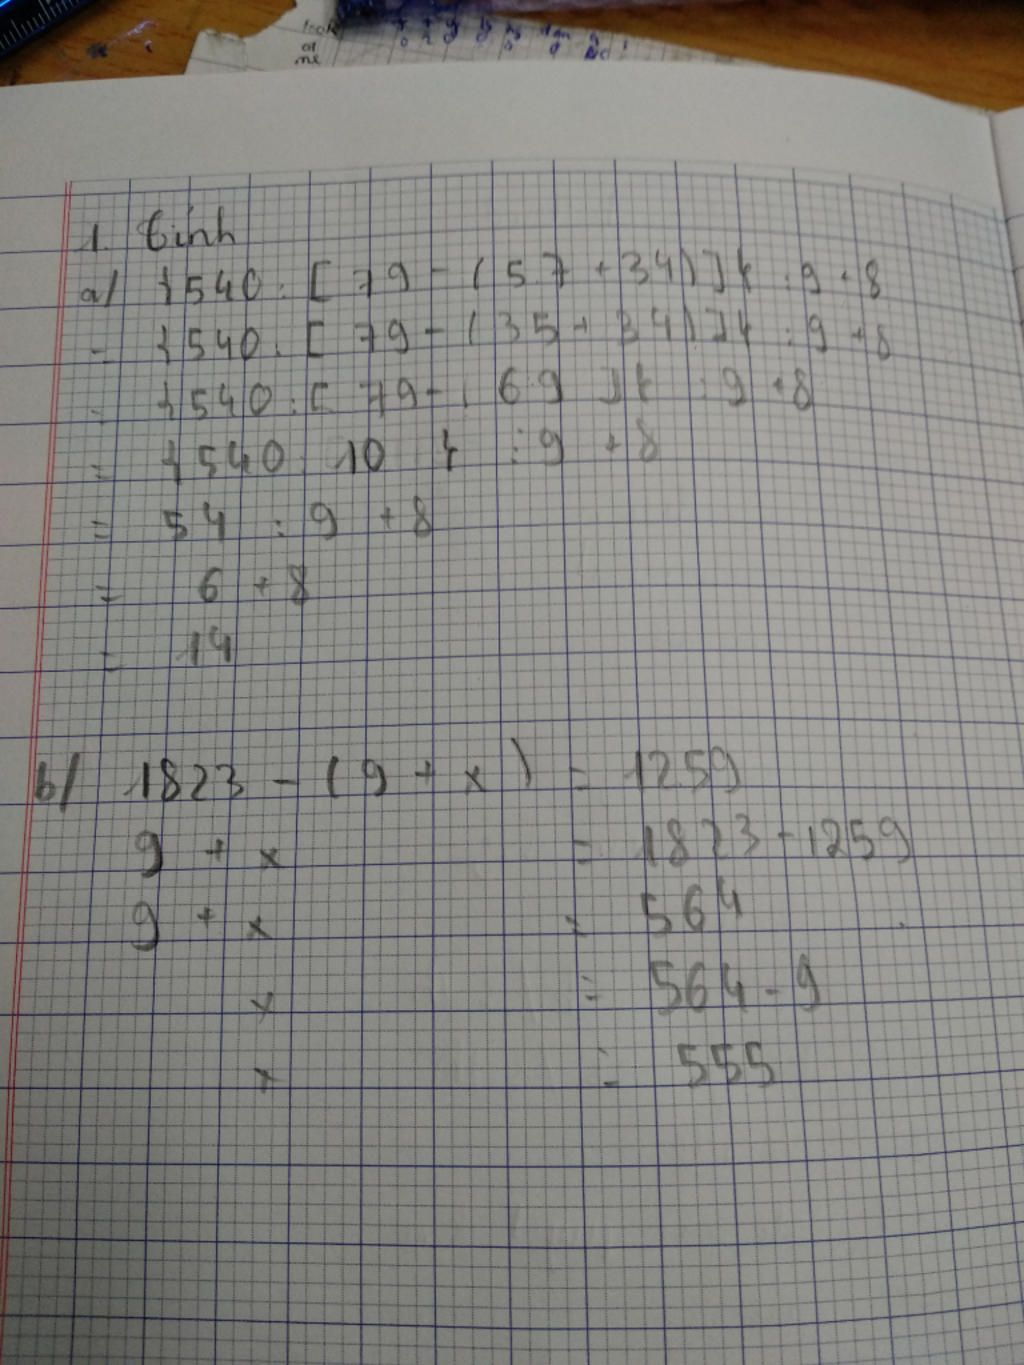 look
at
me
1. Tính
a/ {540 : [ 79 - ( 5 7 + 34) ]} : 9 + 8
= {540 : [ 79 - ( 35 + 34) ]} : 9 + 8
= {540 : [ 79 - ( 69 ]} : 9 + 8
= {540 : 10 } : 9 + 8
= 54 : 9 + 8
= 6 + 8
= 14
b/ 1823 - ( 9 + x ) = 1259
9 + x = 1823 - 1259
9 + x = 564
x = 564 - 9
x = 555